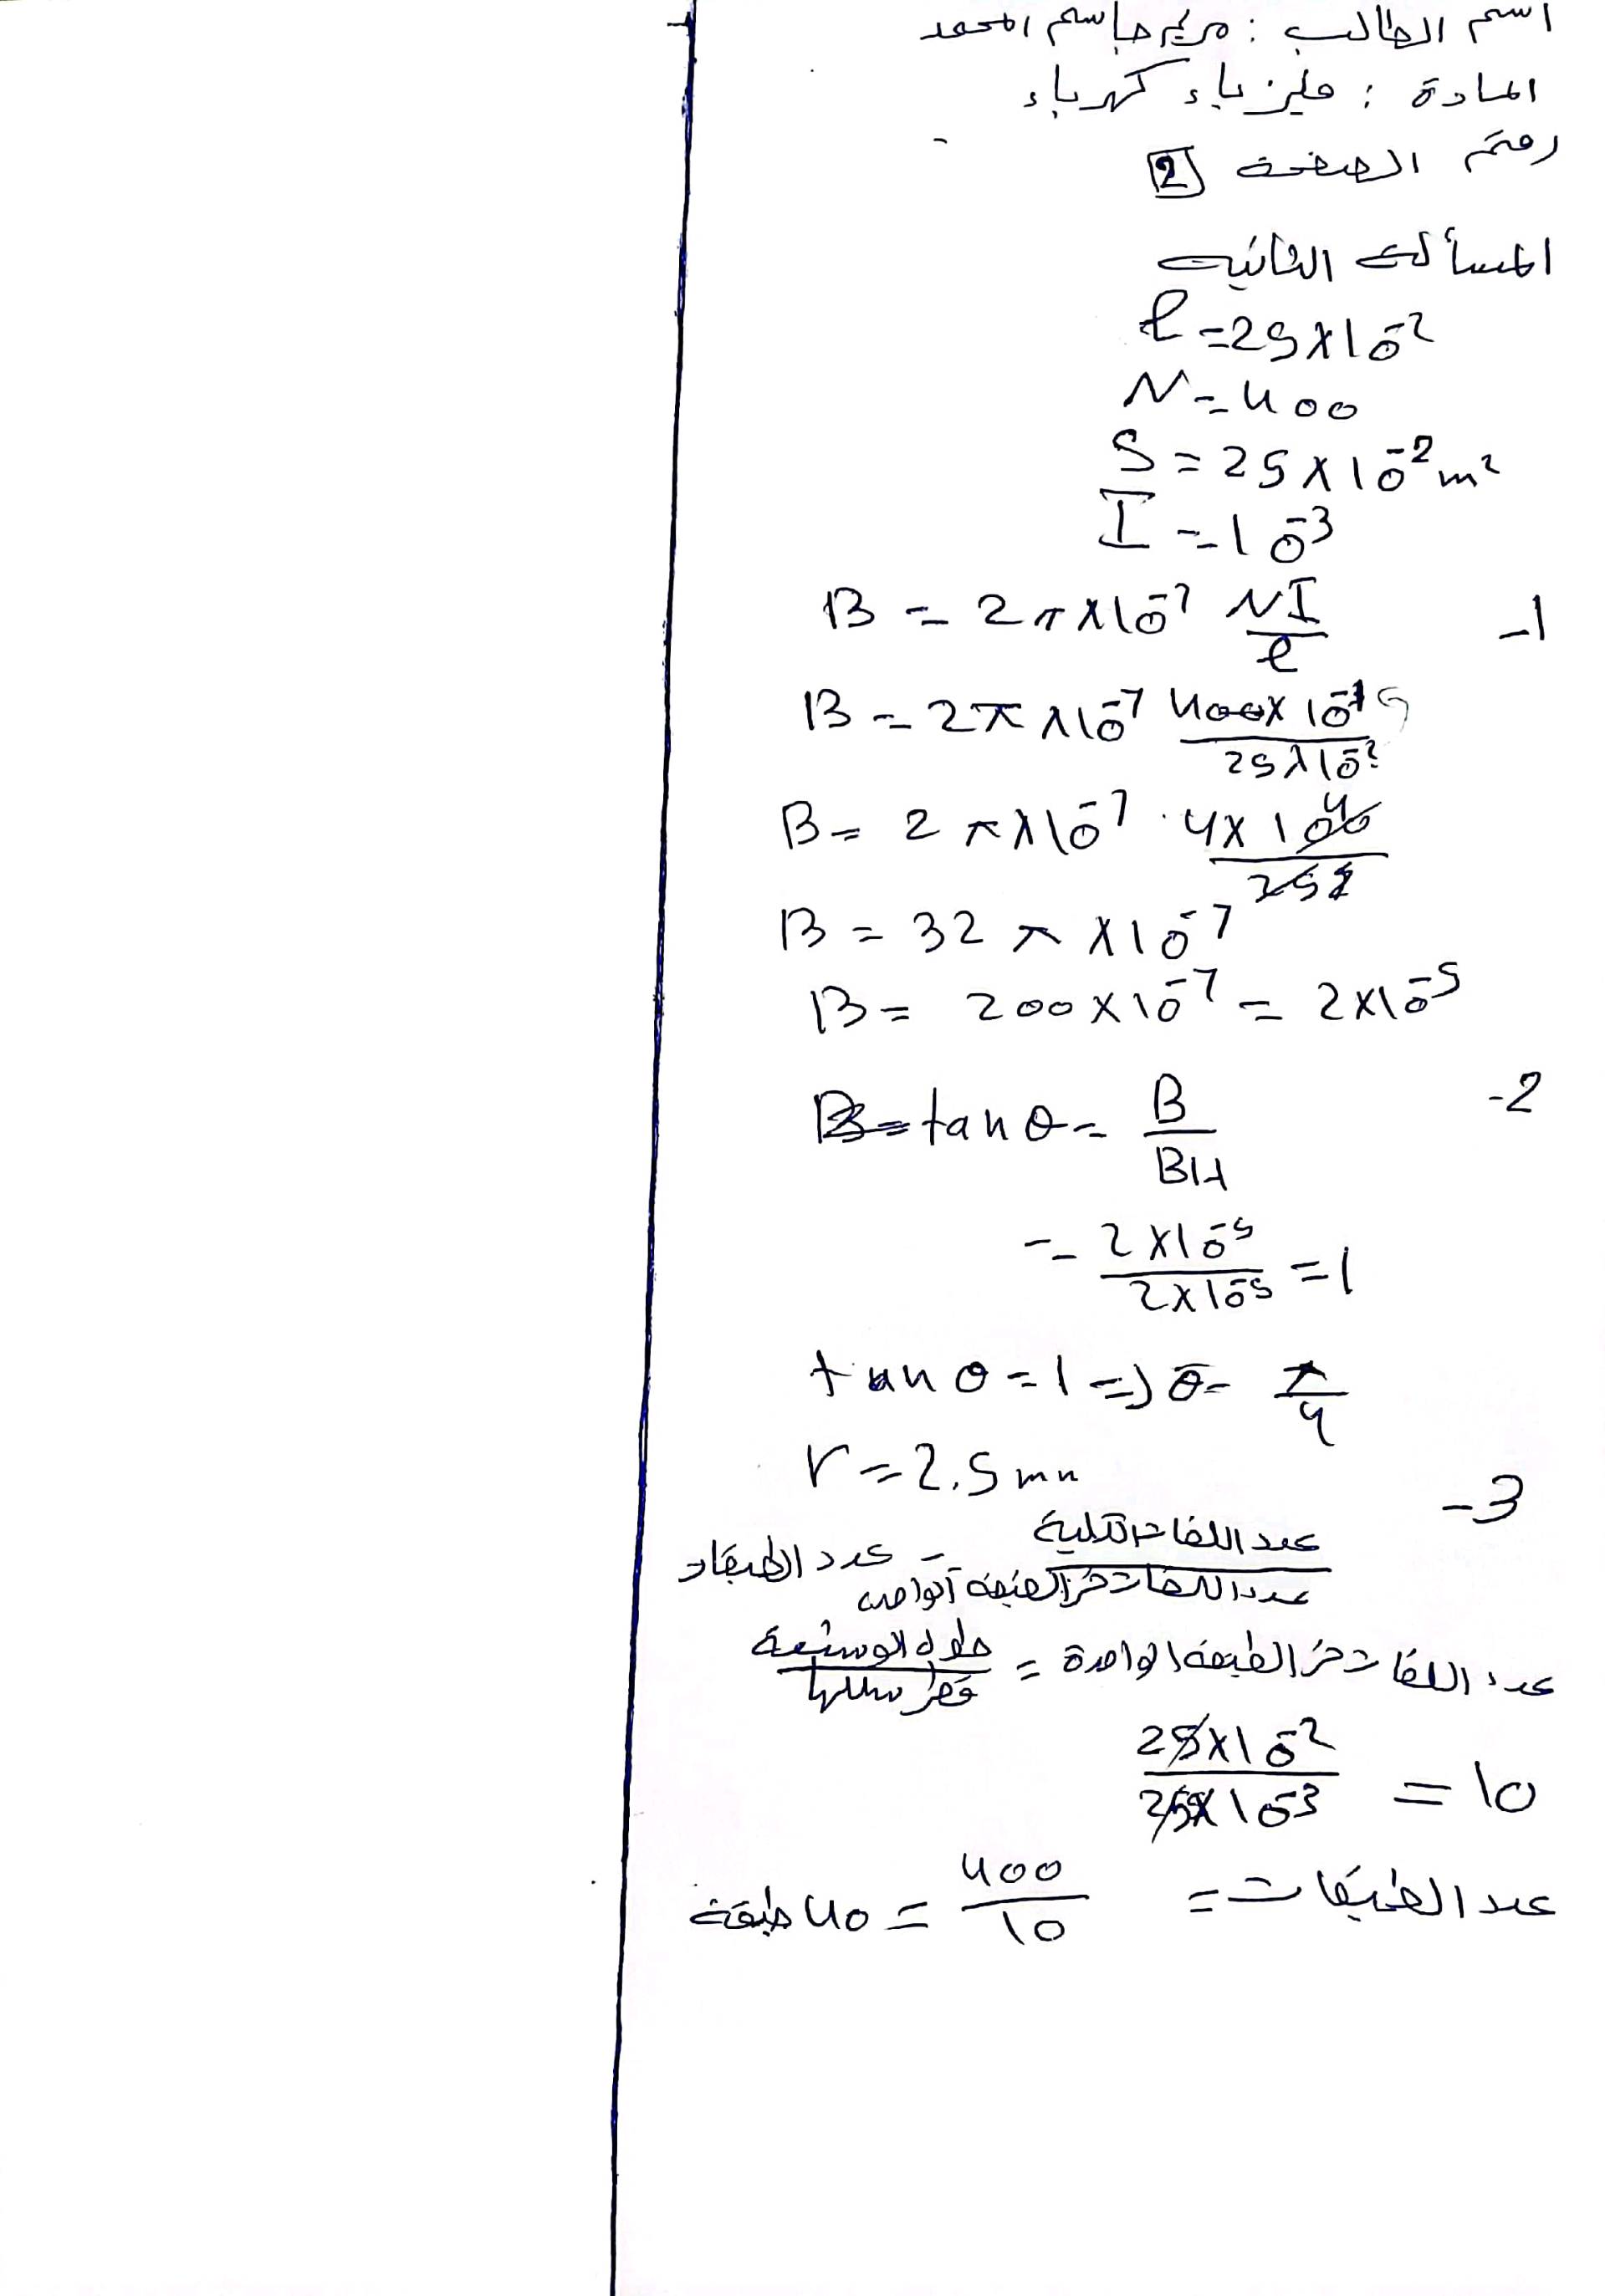 اسم الطالب : مريم جاسم المحمد
المادة : فيزياء كهرباء
رقم الصفحة 2
المسألة الثانية
l = 25 × 10⁻²
N = 400
S = 25 × 10⁻² m²
I = 10⁻³
-1
B = 2π × 10⁻⁷ NI/l
B = 2π × 10⁻⁷
B = 2π × 10⁻⁷ · 4 × 100
B = 32π × 10⁻⁷
B = 200 × 10⁻⁷ = 2 × 10⁻⁵
-2
tan θ = B/BH
= 2 × 10⁻⁵ / 2 × 10⁻⁵ = 1
tan θ = 1 ⇒ θ = π/4
r = 2.5 mm
-3
عدد الطبقات = عدد اللفات الكلية / عدد اللفات في الطبقة الواحدة
عدد اللفات في الطبقة الواحدة = طول الوشيعة / قطر سلكها
25 × 10⁻² / 25 × 10⁻³ = 10
عدد الطبقات = 400/10 = 40 طبقة